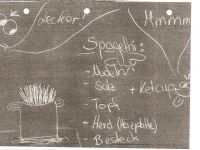 Lecker!
Mmmm
Spagetti:
- Nudeln
- Salz + Ketcup
- Topf
- Herd (Herzplatte)
- Besteck